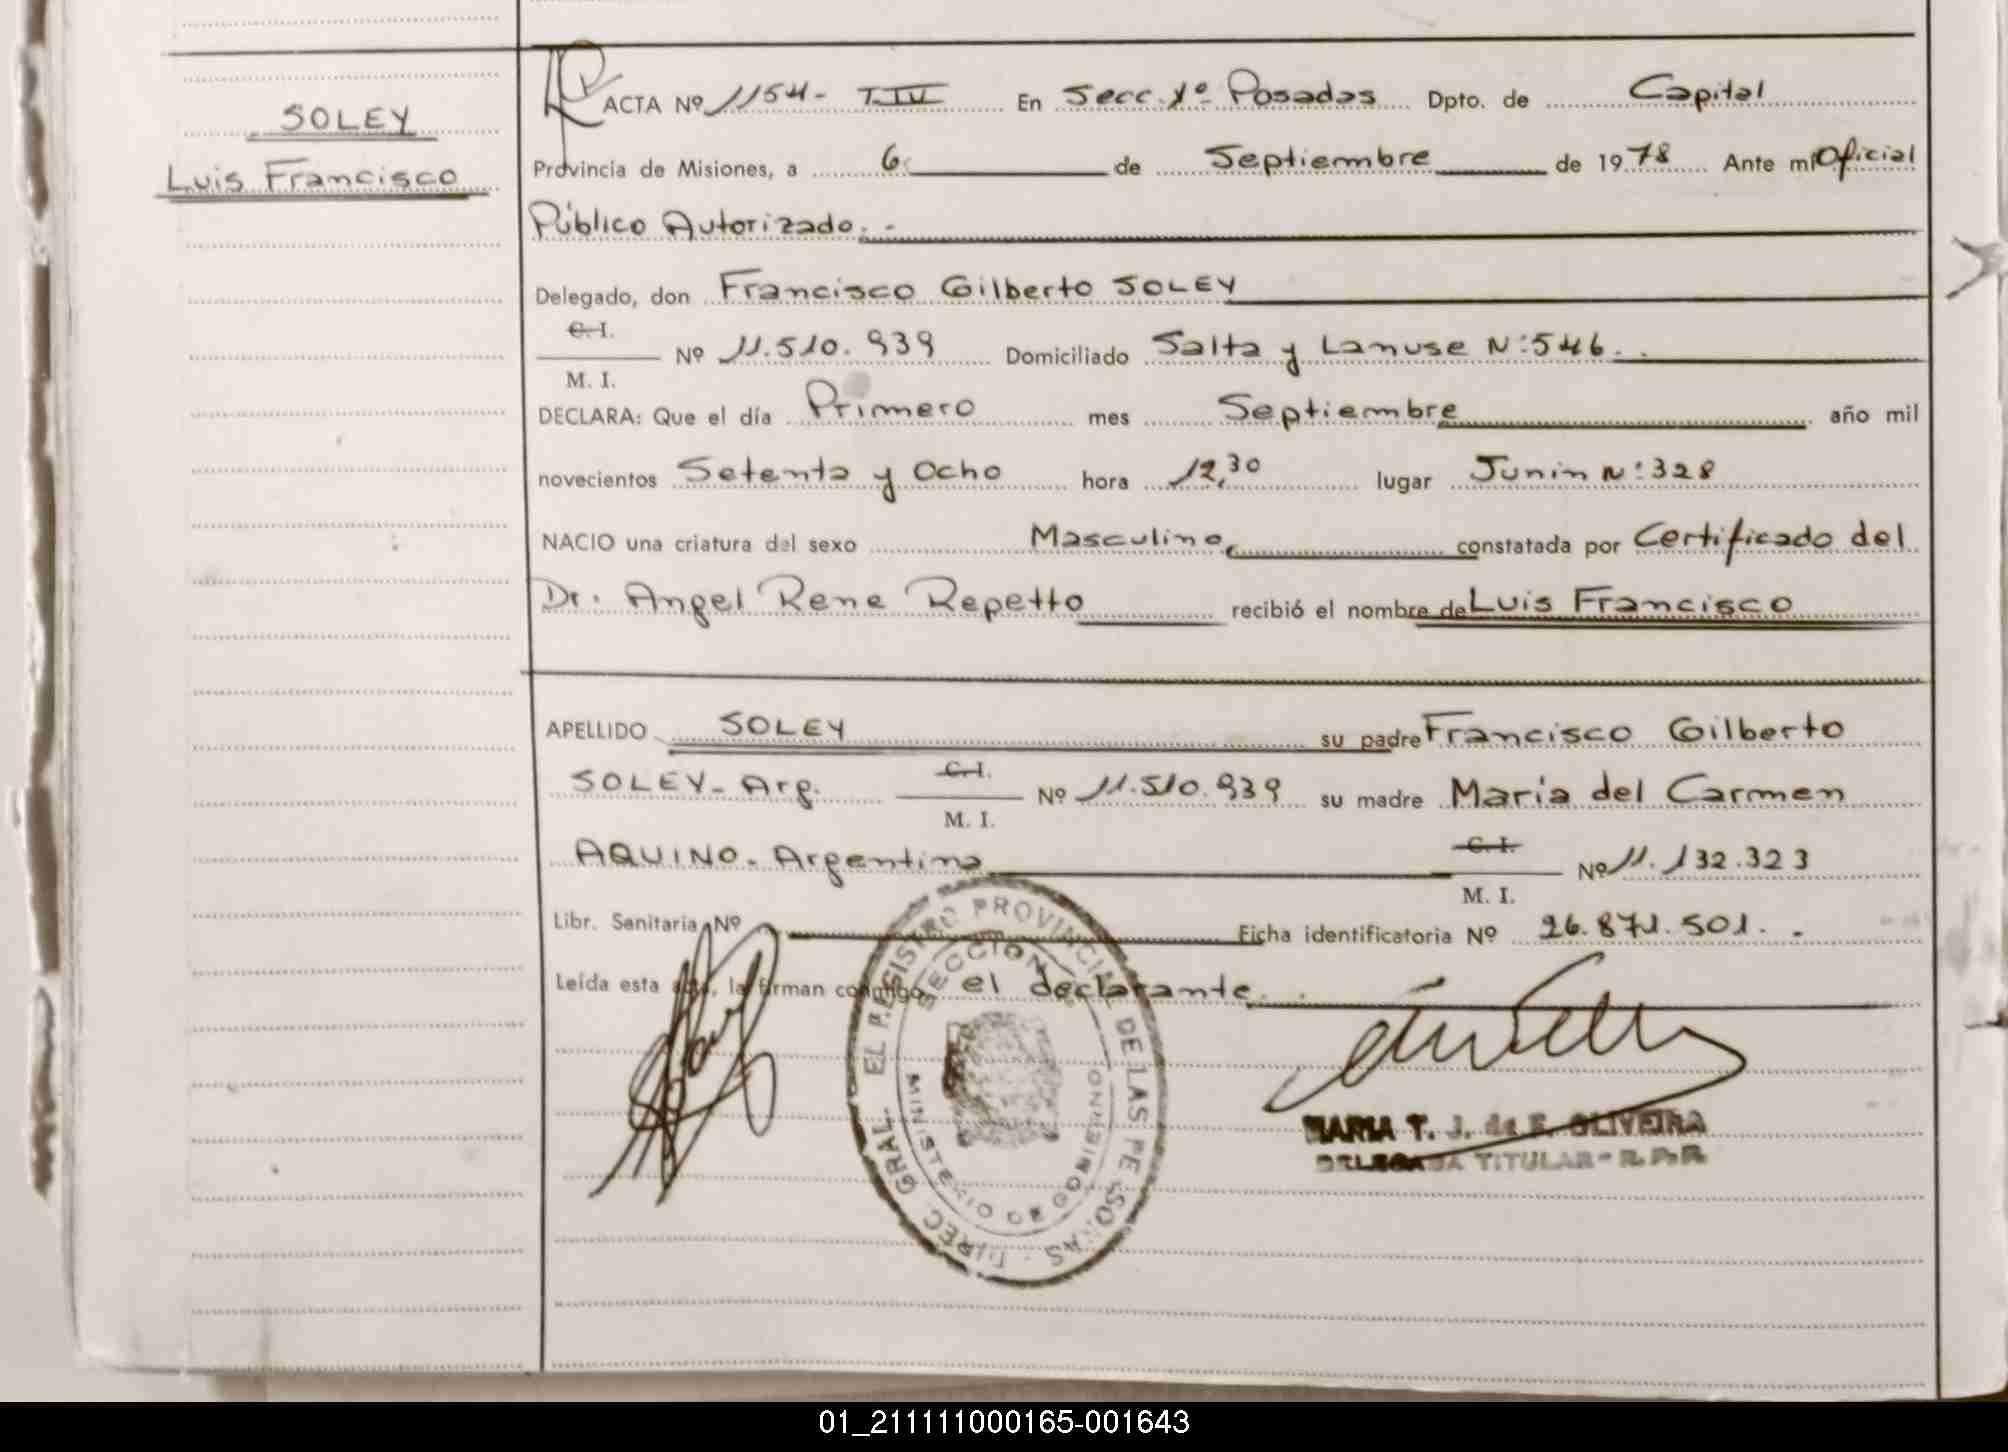 SOLEY
Luis Francisco
ACTA Nº 1154- T.IV En Secc. 1º Posadas Dpto. de Capital
Provincia de Misiones, a 6 de Septiembre de 1978 Ante mí Oficial
Público Autorizado.-
Delegado, don Francisco Gilberto SOLEY
C.I.
M. I.
Nº 11.510.939 Domiciliado Salta y Lanuse N:546.
DECLARA: Que el día Primero mes Septiembre año mil
novecientos Setenta y Ocho hora 12,30 lugar Junin N:328
NACIO una criatura del sexo Masculino, constatada por Certificado del
Dr. Angel Rene Repetto recibió el nombre de Luis Francisco
APELLIDO SOLEY su padre Francisco Gilberto
SOLEY- Arg. C.I. M. I. Nº 11.510.939 su madre Maria del Carmen
AQUINO- Argentina C.I. M. I. Nº 11.132.323
Libr. Sanitaria Nº Ficha identificatoria Nº 26.871.501. -
Leída esta acta, la firman conmigo el declarante.
DIREC. GRAL. EL REGISTRO PROVINCIAL DE LAS PERSONAS
SECCION
MINISTERIO DE GOBIERNO
MARIA T. J. de F. OLIVEIRA
DELEGADA TITULAR - R.P.P.
01_211111000165-001643